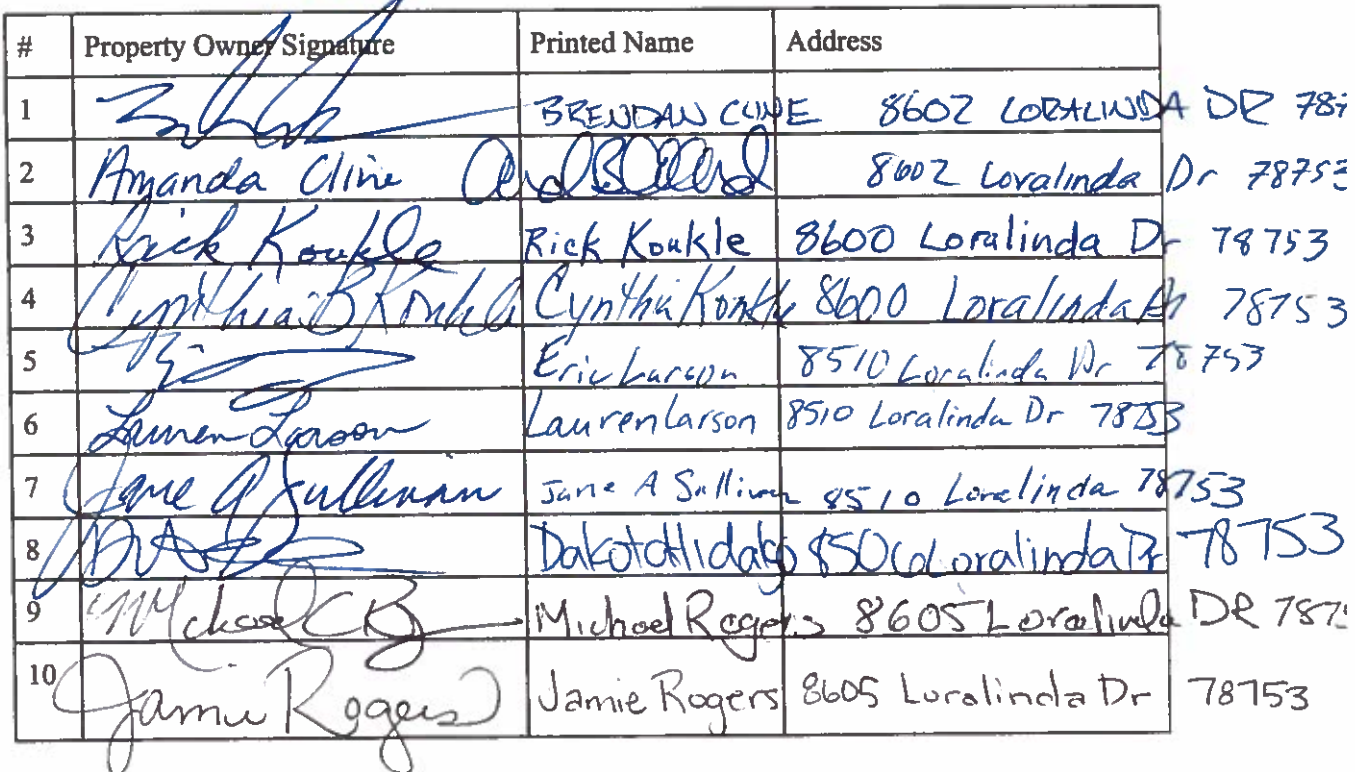 # Property Owner Signature Printed Name Address
1 BRENDAN CLINE 8602 LORALINDA DR 787
2 Amanda Cline 8602 Loralinda Dr 78753
3 Rick Konkle Rick Konkle 8600 Loralinda Dr 78753
4 Cynthia B Konkle Cynthia Konkle 8600 Loralinda Dr 78753
5 Eric Larson 8510 Loralinda Dr 78753
6 Lauren Larson Lauren Larson 8510 Loralinda Dr 78753
7 Jane A Sullivan Jane A Sullivan 8510 Loralinda 78753
8 Dakota Hidalgo Loralinda Dr 78753
9 Michael Rogers 8605 Loralinda DR 787
10 Jamie Rogers Jamie Rogers 8605 Loralinda Dr 78753